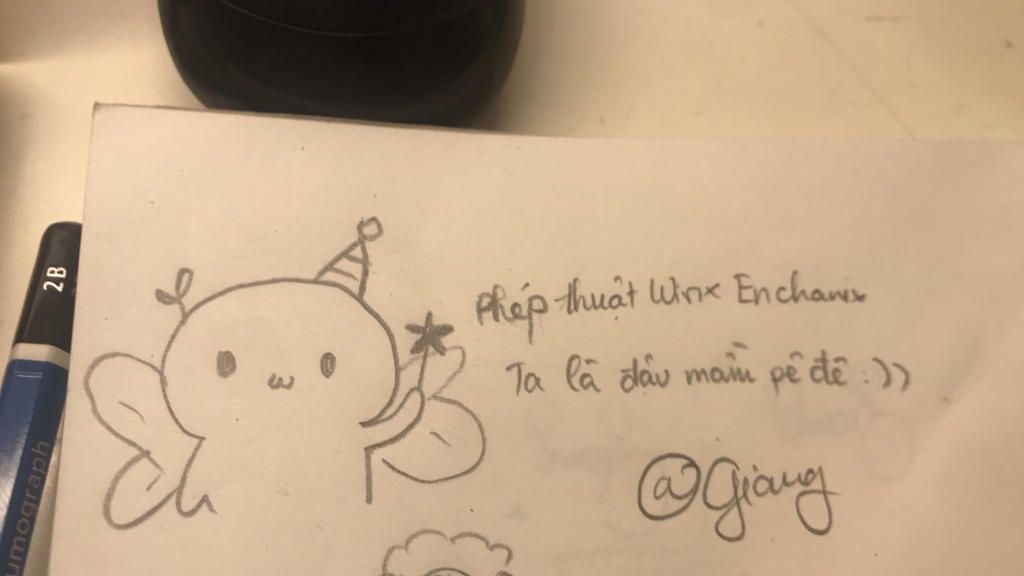 2B
umograph
Phép thuật Winx Enchanix
Ta là dâu mầm pê đê :))
@Giang